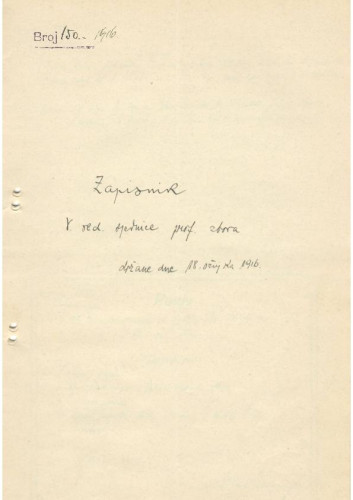 Broj 150.- 1916.
Zapisnik
V red. sjednice prof. zbora
držane dne 18. ožujka 1916.